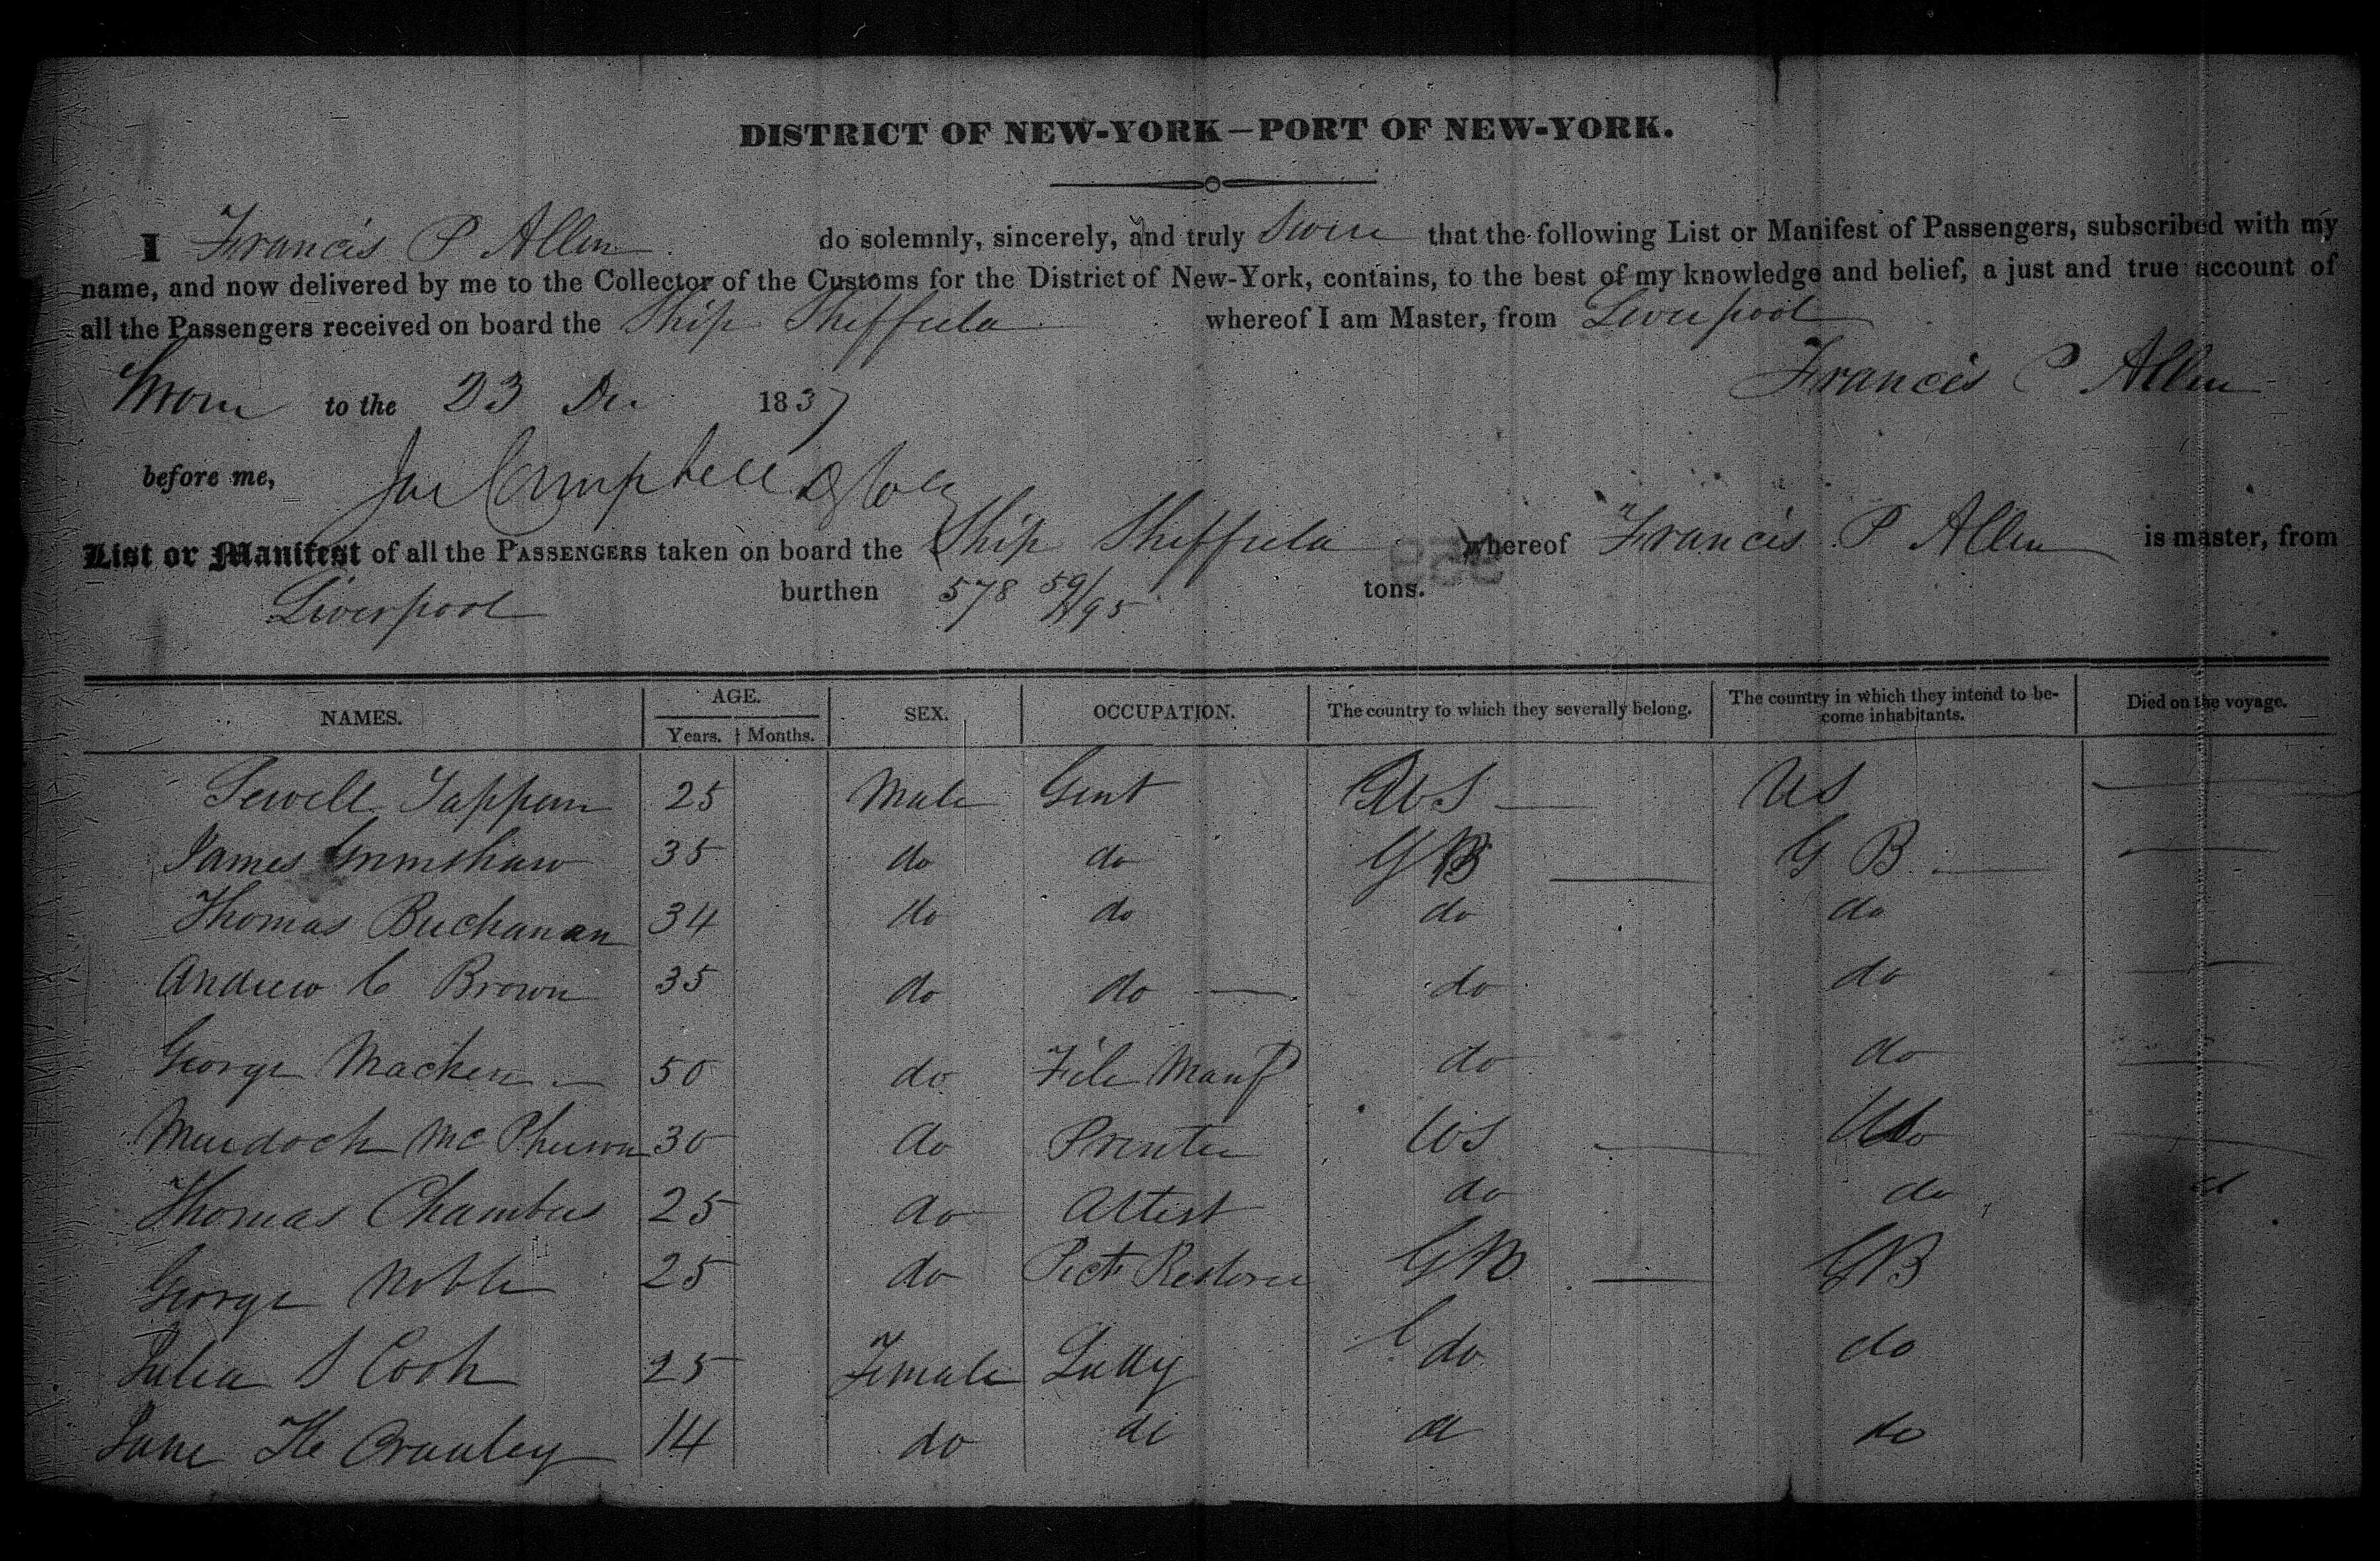 DISTRICT OF NEW-YORK—PORT OF NEW-YORK.
I Francis P Allen do solemnly, sincerely, and truly Swear that the following List or Manifest of Passengers, subscribed with my
name, and now delivered by me to the Collector of the Customs for the District of New-York, contains, to the best of my knowledge and belief, a just and true account of
all the Passengers received on board the Ship Sheffield whereof I am Master, from Liverpool
Sworn to the 23 Dec 1837 Francis P Allen
before me, Campbell
List or Manifest of all the PASSENGERS taken on board the Ship Sheffield whereof Francis P Allen is master, from
Liverpool burthen 578 59/95 tons.
NAMES. AGE. SEX. OCCUPATION. The country to which they severally belong. The country in which they intend to be- Died on the voyage.
Years. Months. come inhabitants.
Sewell Tappan 25 Male Gent US US
James Grimshaw 35 do do GB GB
Thomas Buchanan 34 do do do do
Andrew C Brown 35 do do do do
George Macken 50 do File Manf do do
Murdoch McPherson 30 do Printer US do
Thomas Chambers 25 do Artist do do
George Noble 25 do Pict Restorer GB GB
Julia S Cook 25 Female Lady do do
Jane 14 do do do do